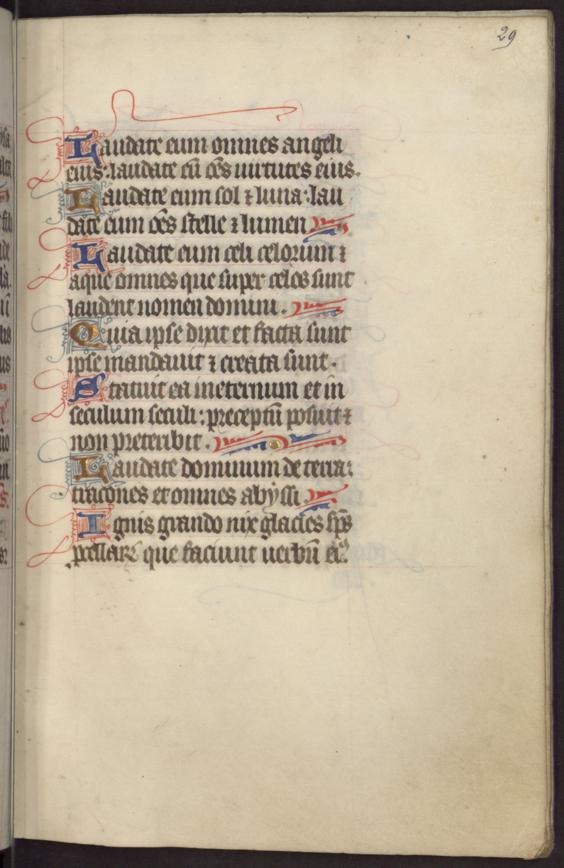 29
Laudate eum omnes angeli
eius: laudate eū oēs uirtutes eius.
Laudate eum sol ⁊ luna: lau
date eum oēs stelle ⁊ lumen
Laudate eum celi celorum ⁊
aque omnes que super celos sunt
laudent nomen domini.
Quia ipse dixit et facta sunt
ipse mandauit ⁊ creata sunt.
Statuit ea in eternum et in
seculum seculi: preceptū posuit ⁊
non preteribit.
Laudate dominum de terra:
dracones et omnes abyssi.
Ignis grando nix glacies sp̄s
procellarū que faciunt uerbū ei⁹.